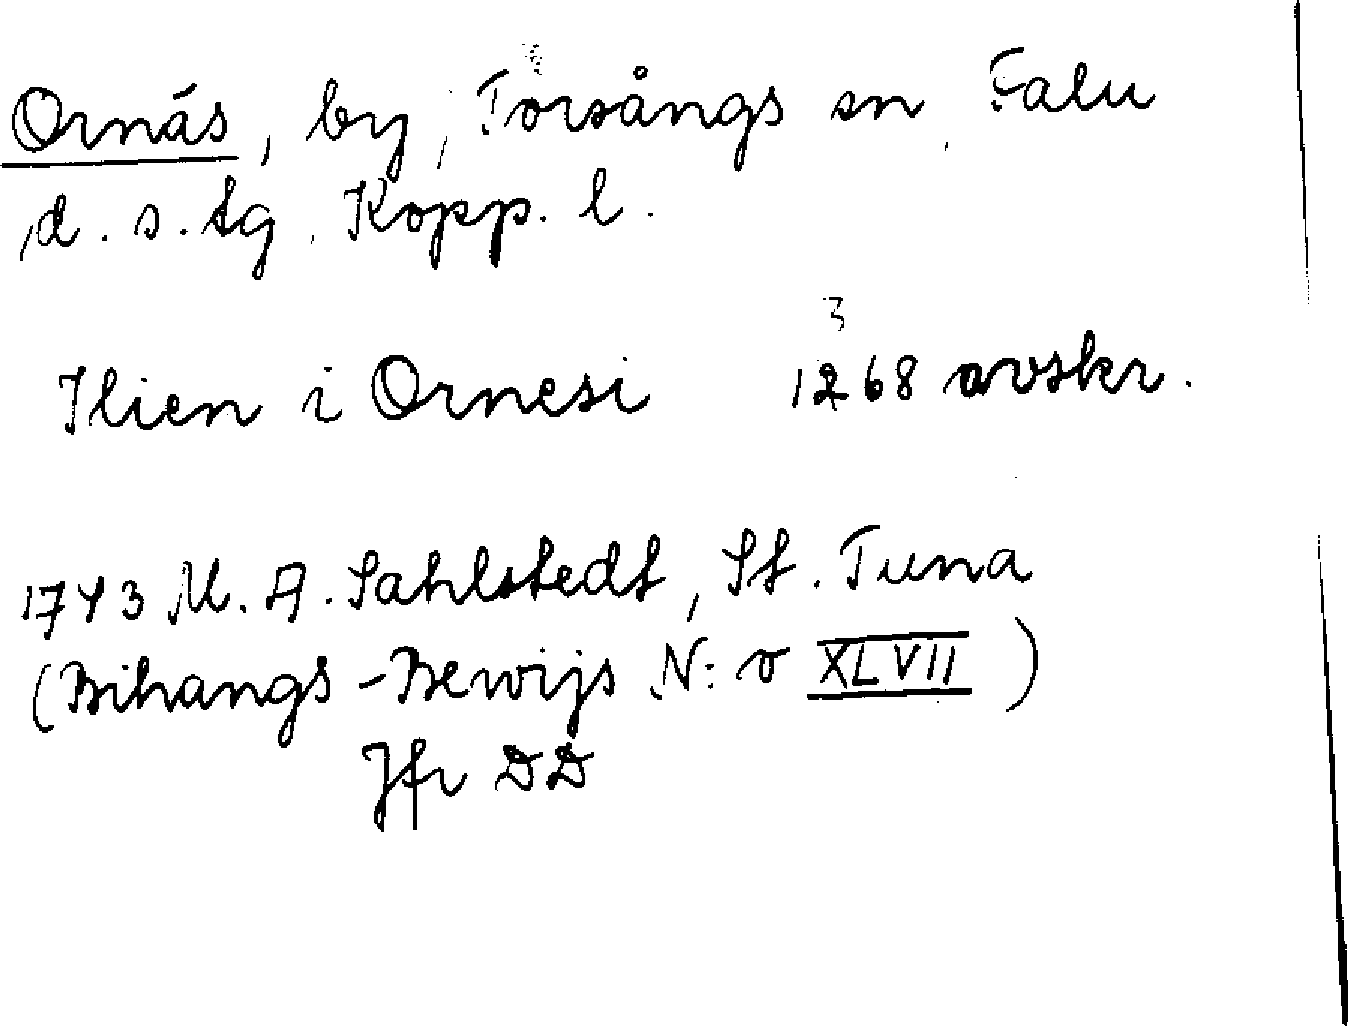 Ornäs, by, Torsångs sn, Falu
d. s. tg. Kopp. l.
3
Ilien i Ornesi 1268 avskr.
1743 M. A. Sahlstedt, St. Tuna
(Bihangs-Bewijs N:o XLVII)
Jfr DD